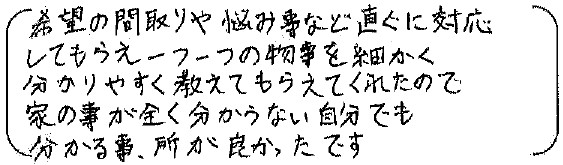 希望の間取りや悩み事など直ぐに対応
してもらえ一つ一つの物事を細かく
分かりやすく教えてもらえてくれたので
家の事が全く分からない自分でも
分かる事、所が良かったです